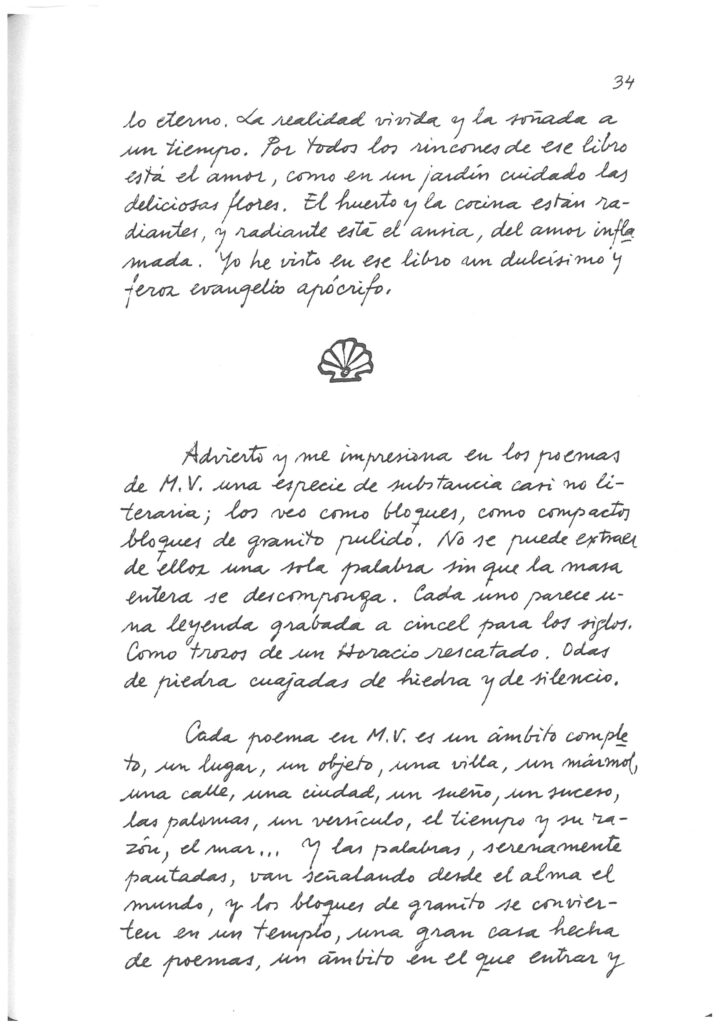 34
lo eterno. La realidad vivida y la soñada a
un tiempo. Por todos los rincones de ese libro
está el amor, como en un jardín cuidado las
deliciosas flores. El huerto y la cocina están ra-
diantes, y radiante está el ansia, del amor infla
mada. Yo he visto en ese libro un dulcísimo y
feroz evangelio apócrifo.
Advierto y me impresiona en los poemas
de M.V. una especie de substancia casi no li-
teraria; los veo como bloques, como compactos
bloques de granito pulido. No se puede extraer
de ellos una sola palabra sin que la masa
entera se descomponga. Cada uno parece u-
na leyenda grabada a cincel para los siglos.
Como trozos de un Horacio rescatado. Odas
de piedra cuajadas de hiedra y de silencio.
Cada poema en M.V. es un ámbito comple
to, un lugar, un objeto, una villa, un mármol,
una calle, una ciudad, un sueño, un suceso,
las palomas, un versículo, el tiempo y su ra-
zón, el mar... Y las palabras, serenamente
pautadas, van señalando desde el alma el
mundo, y los bloques de granito se convier-
ten en un templo, una gran casa hecha
de poemas, un ámbito en el que entrar y